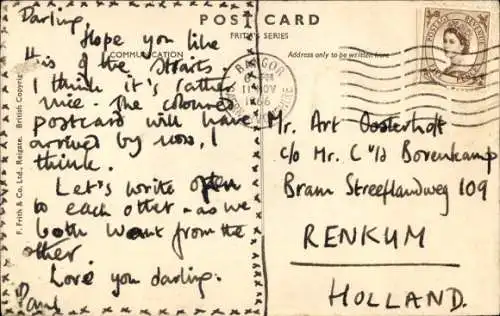 Darling,
Hope you like
this of the Straits.
I think it's rather
nice. The coloured
postcard will have
arrived by now, I
think.
Let's write often
to each other - as we
both want from the
other.
Love you darling.
POST CARD
FRITH'S SERIES
COMMUNICATION
Address only to be written here
F. Frith & Co. Ltd., Reigate.
British Copyright
BANGOR
11 NOV
1966
POSTAGE REVENUE
Mr. Art Oosterholt
c/o Mr. C v/d Bovenkamp
Bram Streeflandweg 109
RENKUM
HOLLAND.